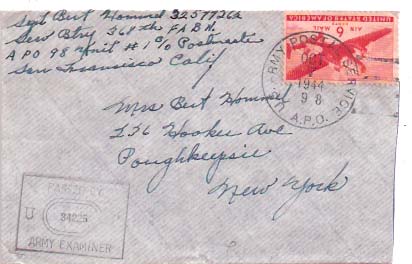 Sgt Bert Hommel 32577262
Serv Btry 368th F A B N.
A P O 98 Unit #1 c/o Postmaster
San Francisco Calif
UNITED STATES OF AMERICA
6
AIR MAIL
U.S. ARMY POSTAL SERVICE
OCT
1944
98
A.P.O.
Mrs Bert Hommel
136 Hooker Ave
Poughkeepsie
New York
PASSED BY
U
34225
ARMY EXAMINER